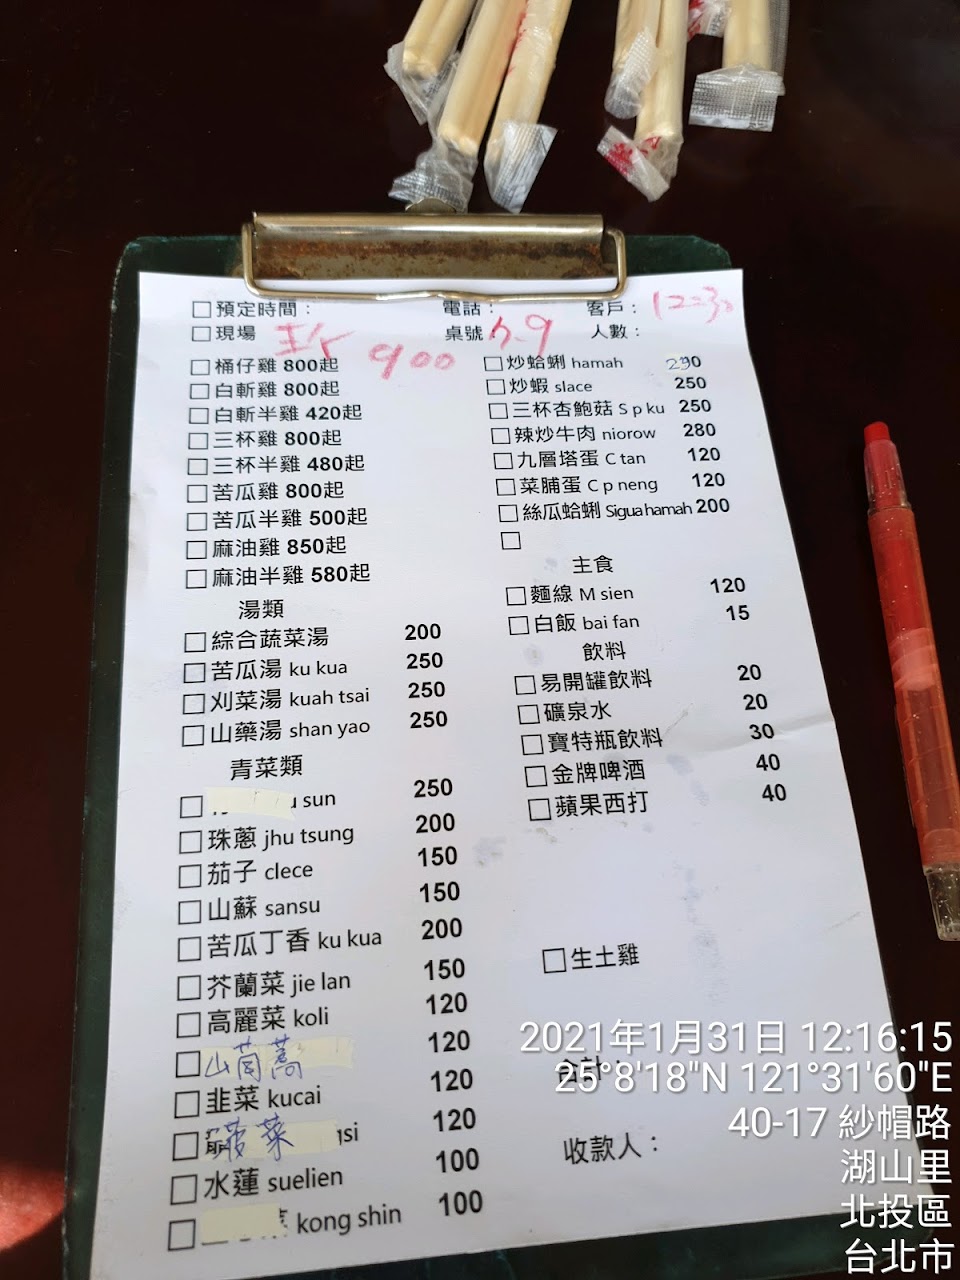 預定時間： 電話： 客戶： 12:30
現場 桌號 人數：
900
桶仔雞 800起
白斬雞 800起
白斬半雞 420起
三杯雞 800起
三杯半雞 480起
苦瓜雞 800起
苦瓜半雞 500起
麻油雞 850起
麻油半雞 580起
湯類
綜合蔬菜湯 200
苦瓜湯 ku kua 250
刈菜湯 kuah tsai 250
山藥湯 shan yao 250
青菜類
sun 250
珠蔥 jhu tsung 200
茄子 clece 150
山蘇 sansu 150
苦瓜丁香 ku kua 200
芥蘭菜 jie lan 150
高麗菜 koli 120
山茼蒿 120
韭菜 kucai 120
菠菜 120
水蓮 suelien 100
kong shin 100
炒蛤蜊 hamah 290
炒蝦 slace 250
三杯杏鮑菇 S p ku 250
辣炒牛肉 niorow 280
九層塔蛋 C tan 120
菜脯蛋 C p neng 120
絲瓜蛤蜊 Sigua hamah 200
主食
麵線 M sien 120
白飯 bai fan 15
飲料
易開罐飲料 20
礦泉水 20
寶特瓶飲料 30
金牌啤酒 40
蘋果西打 40
生土雞
合計：
收款人：
2021年1月31日 12:16:15
25°8'18"N 121°31'60"E
40-17 紗帽路
湖山里
北投區
台北市